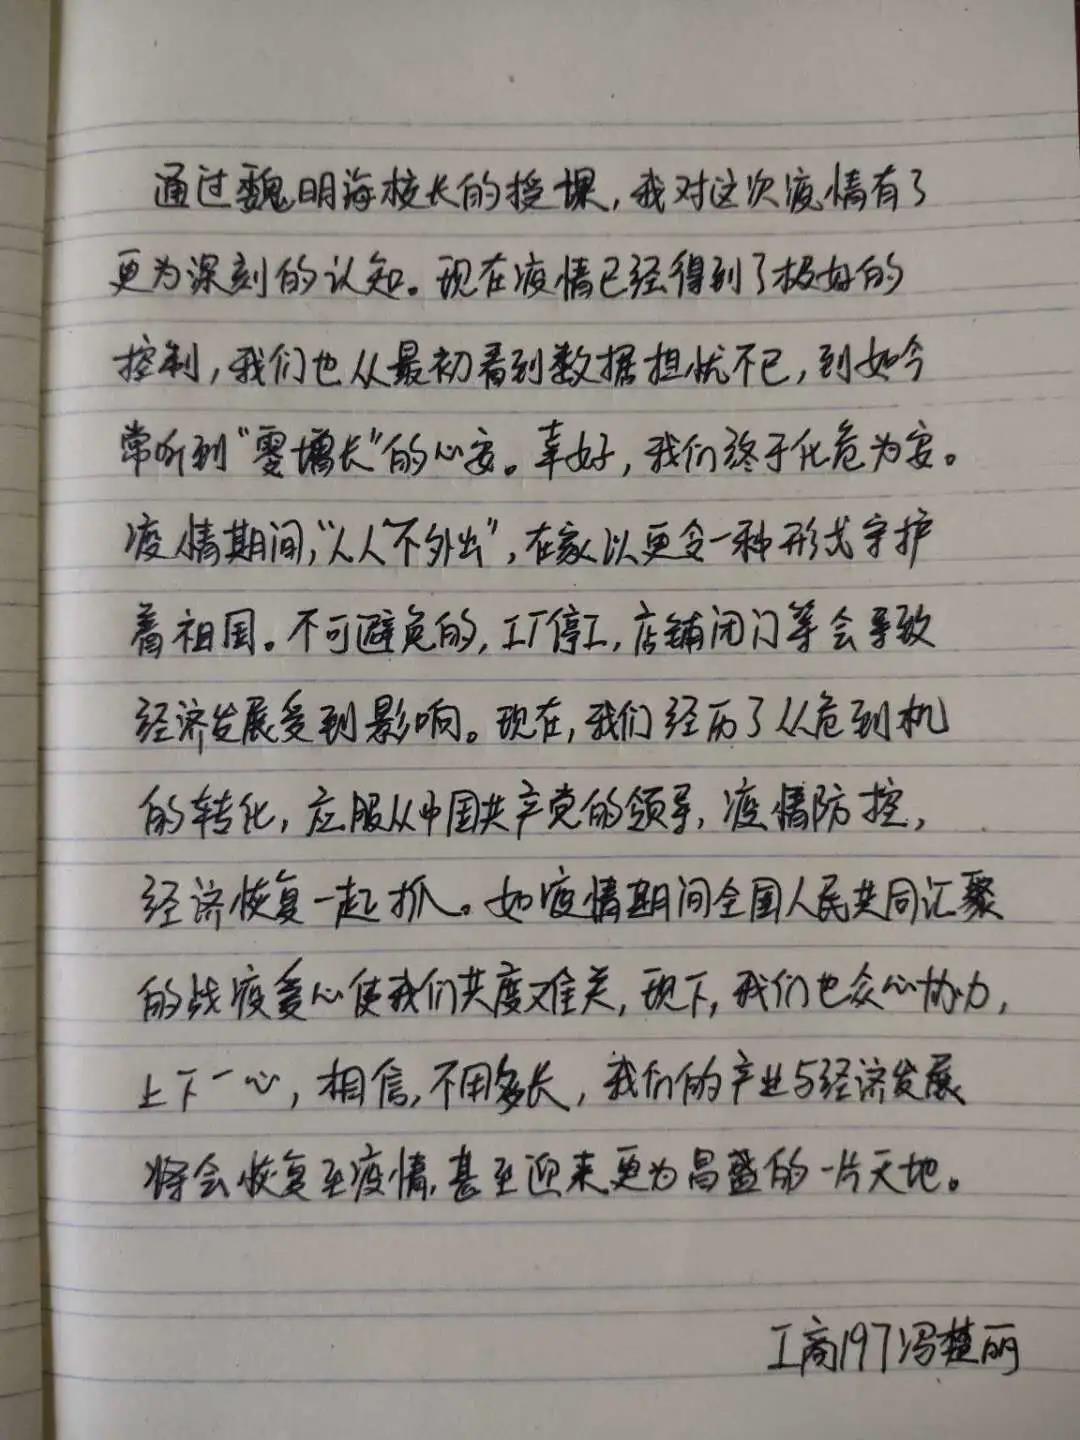 通过魏明海校长的授课,我对这次疫情有了
更为深刻的认知。现在疫情已经得到了极好的
控制,我们也从最初看到数据担忧不已,到如今
常听到“零增长”的心安。幸好,我们终于化危为安。
疫情期间,“人人不外出”,在家以更令一种形式守护
着祖国。不可避免的,工厂停工,店铺闭门等会导致
经济发展受到影响。现在,我们经历了从危到机
的转化,应服从中国共产党的领导,疫情防控,
经济恢复一起抓。如疫情期间全国人民共同汇聚
的战疫爱心使我们共度难关,现下,我们也众心协力,
上下一心,相信,不用多长,我们的产业与经济发展
将会恢复至疫情,甚至迎来更为昌盛的一片天地。
工商197冯楚丽